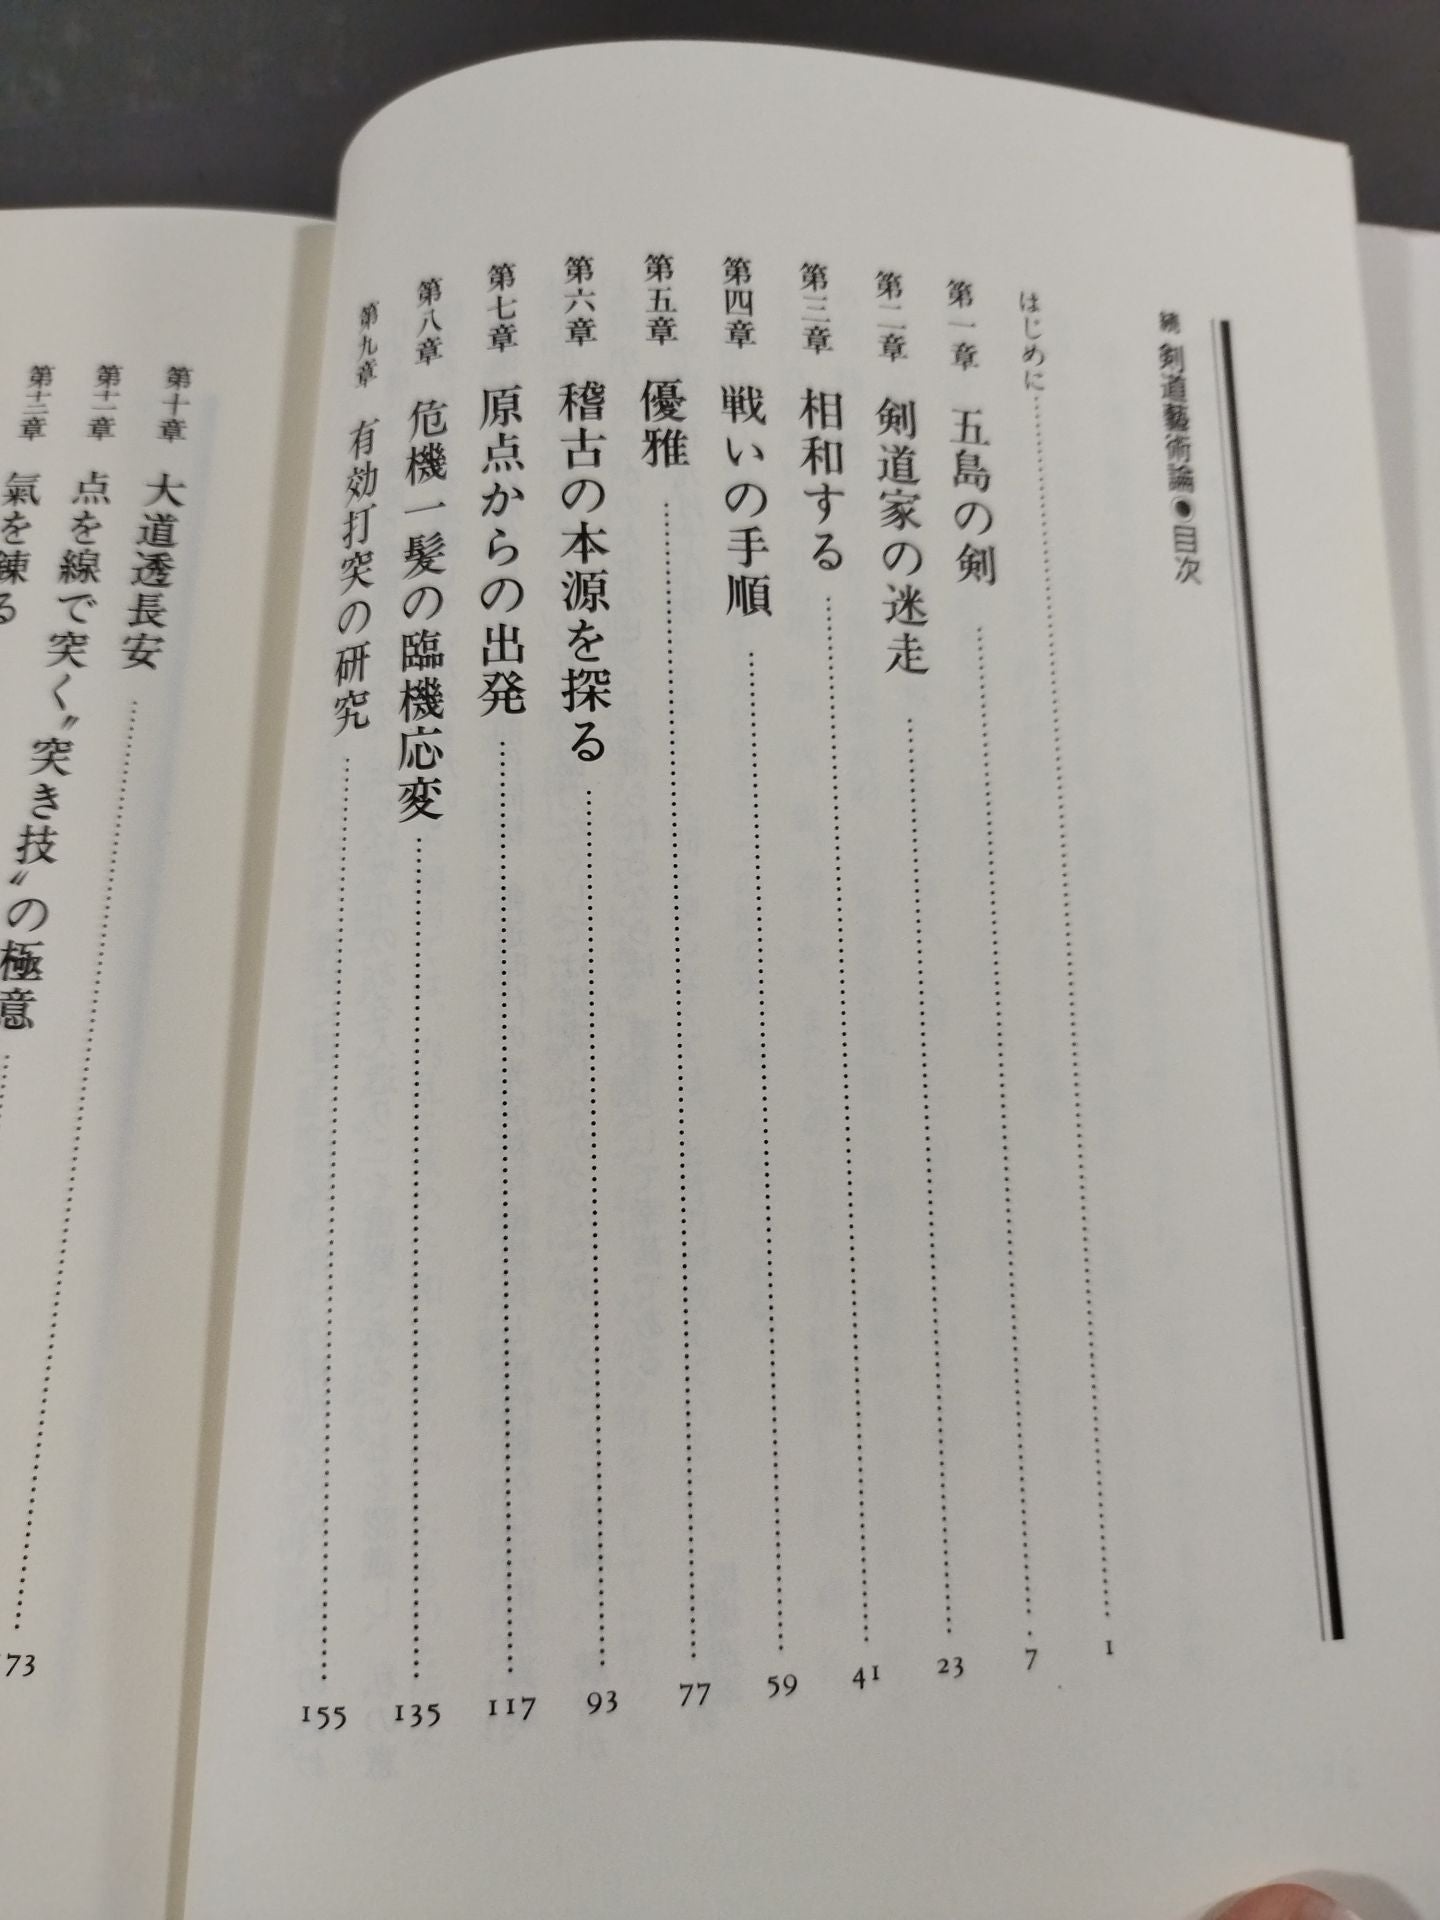 続 剣道藝術論●目次
はじめに……1
第一章 五島の剣……7
第二章 剣道家の迷走……23
第三章 相和する……41
第四章 戦いの手順……59
第五章 優雅……77
第六章 稽古の本源を探る……93
第七章 原点からの出発……117
第八章 危機一髪の臨機応変……135
第九章 有効打突の研究……155
第十章 大道透長安……73
第十一章 点を線で突く〝突き技〟の極意……
第十二章 氣を錬る